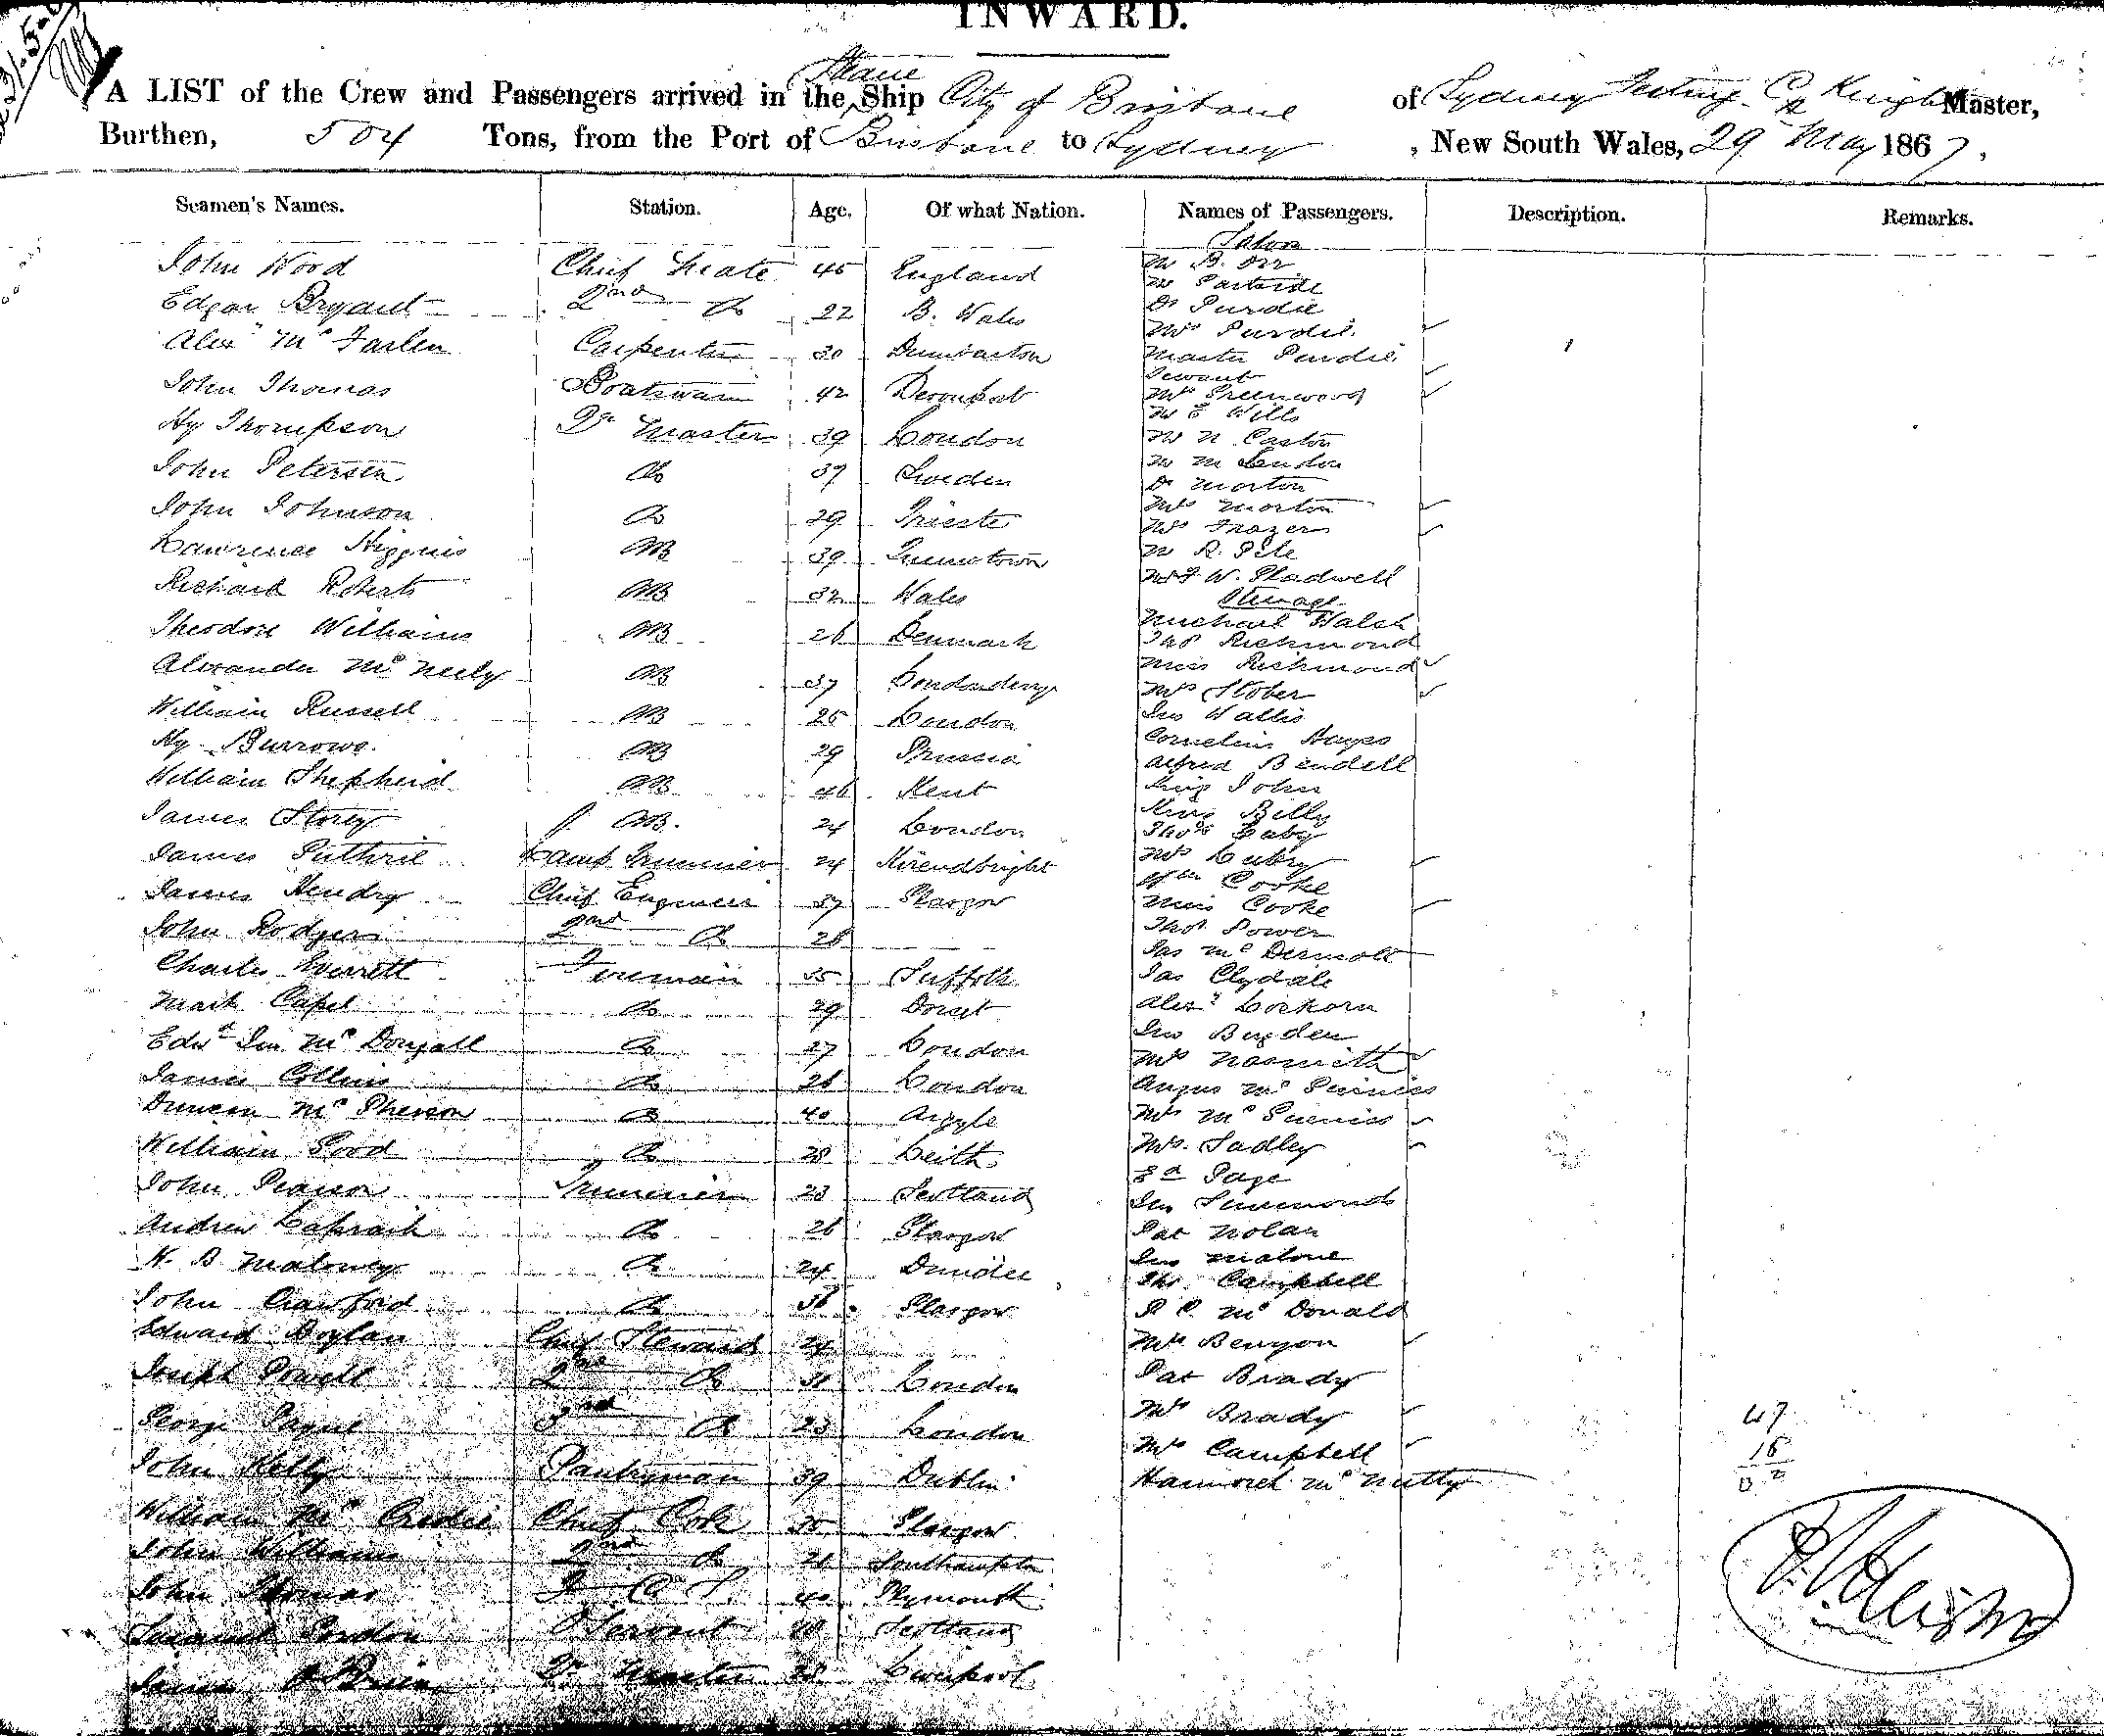 INWARD.
A LIST of the Crew and Passengers arrived in the Ship City of Brisbane of Sydney Master,
Burthen, 504 Tons, from the Port of Brisbane to Sydney , New South Wales, 29 May 1867,
Seamen's Names. Station. Age. Of what Nation. Names of Passengers. Description. Remarks.
Saloon
John Wood Chief Mate 45 England Mr B. Orr
Mr Parbride
Edgar Bryant 2nd Do 22 B. Wales Dr Purdie
Mrs Purdie
Alexr Mc Farlen Carpenter 30 Dumbarton Master Purdie
Servant
John Thomas Boatswain 42 Devonport Mrs Greenwood
Mr E Wills
Hy Thompson Qr Master 39 London Mr N. Caston
John Petersen Do 37 Sweden Mr M
Dr Morton
John Johnson Do 29 Trieste Mrs Morton
Mrs Frazer
Lawrence Higgins AB 39 Queenstown Mr R. Pile
Richard Roberts AB 32 Wales Mr F W. Gladwell
Steerage
Theodore Williams AB 26 Denmark Michael Walsh
Thos Richmond
Alexander Mc Neely AB 37 Londonderry Miss Richmond
Mrs Stober
William Russell AB 25 London Jno Wallis
Hy Burrows AB 29 Prussia Cornelius Hayes
Alfred Bendell
William Shepherd AB 46 Kent King John
King Billy
James Storey AB. 24 London Thos
James Guthrie Lamp Trimmer 24 Kircudbright Mrs
Wm Cooke
James Hendry Chief Engineer 37 Glasgow Miss Cooke
John Rodgers 2nd Do 28 Thos Power
Jas Mc Dermott
Charles Everett Fireman 35 Suffolk Jas Clydale
Mark Capel Do 29 Dorset Alexr Lockorn
Jno Bugden
Edwd Jno Mc Dougall Do 27 London Mrs Nasmith
James Collins Do 26 London Angus Mc
Duncan Mc Pherson Do 40 Argyle Mrs Mc
William Good Do 28 Leith Mrs. Sadley
Ed Page
John Pearson Trimmer 23 Scotland Jno Simmonds
Andrew Lapraik Do 26 Glasgow Pat Nolan
H. B. Maloney Do 24 Dundee Jno Malone
Thos Campbell
John Crawford Do 36 Glasgow Mc Donald
Edward Doylan Chief Steward 24 Mrs Benyon
Joseph Powell 2nd Do 31 London Pat Brady
George Payne 3rd Do 23 London Mrs Brady 47
Mrs Campbell 15
John Kelly Pantryman 39 Dublin Mc Nutty
William Mc Credie Chief Cook 30 Glasgow
John Williams 2nd do 26 Southampton
John Thomas 40 Plymouth
Samuel Gordon Servant Scotland
James O Brien Qr Master 28 Liverpool